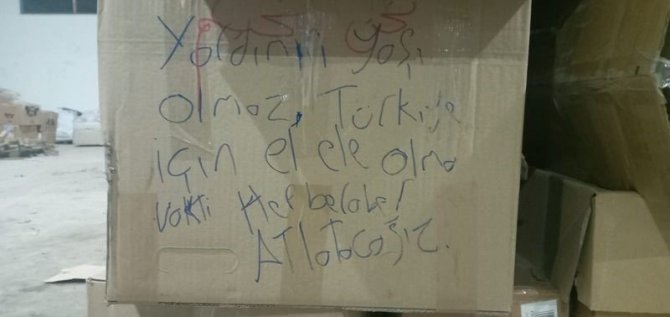 Yardımın yaşı
olmaz, Türkiye
için el ele olma
vakti Hep beraber
Atlatacağız.